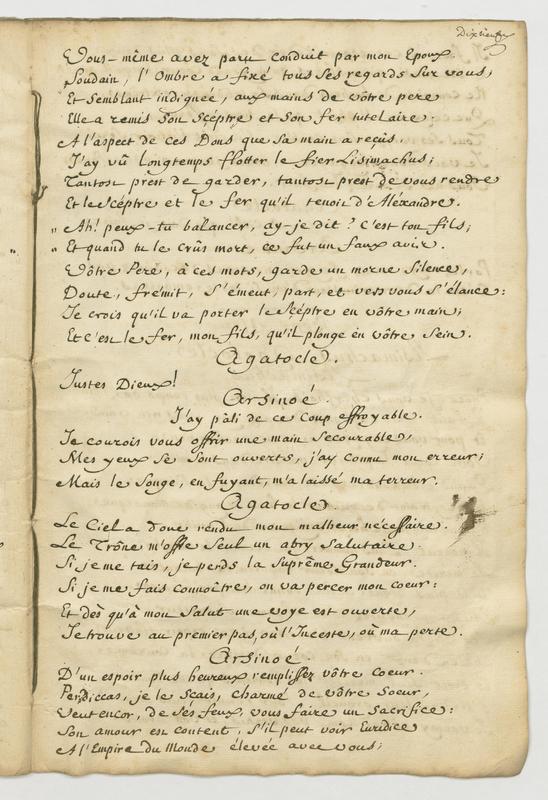 Dixieme
Vous-même avez paru conduit par mon Epoux.
Soudain, l'Ombre a fixé tous ses regards sur vous,
Et semblant indignée, aux mains de vôtre pere
Elle a remis son Scéptre et son fer tutelaire.
A l'aspect de ces Dons que sa main a reçûs,
J'ay vû longtemps flotter le fier Lisimachus;
Tantost prest de garder, tantost prest de vous rendre
Et le Scéptre et le fer qu'il tenoit d'Aléxandre.
" Ah! peux-tu balancer, ay-je dit? C'est ton fils;
" Et quand tu le crûs mort, ce fut un faux avis.
Vôtre Pere, à ces mots, garde un morne silence,
Doute, frémit, s'émeut, part, et vers vous s'élance:
Je crois qu'il va porter le Scéptre en vôtre main;
Et c'est le fer, mon fils, qu'il plonge en vôtre Sein.
Agatocle.
Justes Dieux!
Arsinoé.
J'ay pâli de ce coup effroyable.
Je courois vous offrir une main secourable,
Mes yeux se sont ouverts, j'ay connu mon erreur;
Mais le Songe, en fuyant, m'a laissé ma terreur.
Agatocle.
Le Ciel a donc rendu mon malheur nécessaire.
Le Trône m'offre seul un abry salutaire.
Si je me tais, je perds la suprême Grandeur.
Si je me fais connoître, on va percer mon coeur:
Et dès qu'à mon salut une voye est ouverte,
Je trouve au premier pas, où l'Inceste, où ma perte.
Arsinoé.
D'un espoir plus heureux remplissez vôtre coeur.
Perdiccas, je le sçais, charmé de vôtre Soeur,
Veut encor, de ses feux, vous faire un Sacrifice:
Son amour est content, s'il peut voir Euridice
A l'Empire du Monde élevée avec vous;